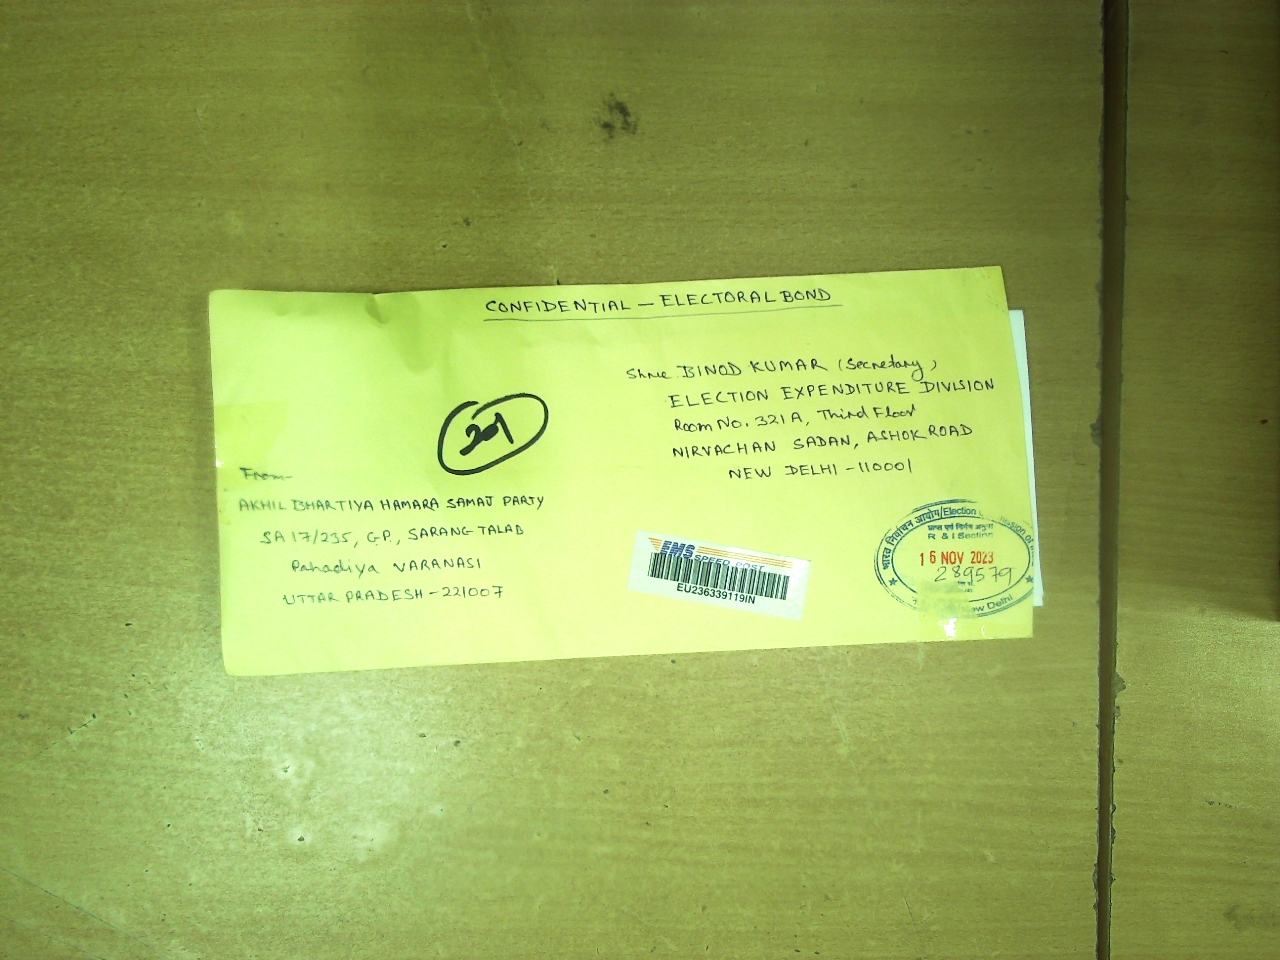 CONFIDENTIAL — ELECTORAL BOND
Shree BINOD KUMAR (Secretary)
ELECTION EXPENDITURE DIVISION
Room No. 321A, Third Floor
NIRVACHAN SADAN, ASHOK ROAD
NEW DELHI - 110001
201
From-
AKHIL BHARTIYA HAMARA SAMAJ PARTY
SA 17/235, G.P., SARANG TALAB
Pahadiya VARANASI
UTTAR PRADESH - 221007
EMS SPEED POST
EU236339119IN
भारत निर्वाचन आयोग/Election
R & I Section
16 NOV 2023
289579
New Delhi